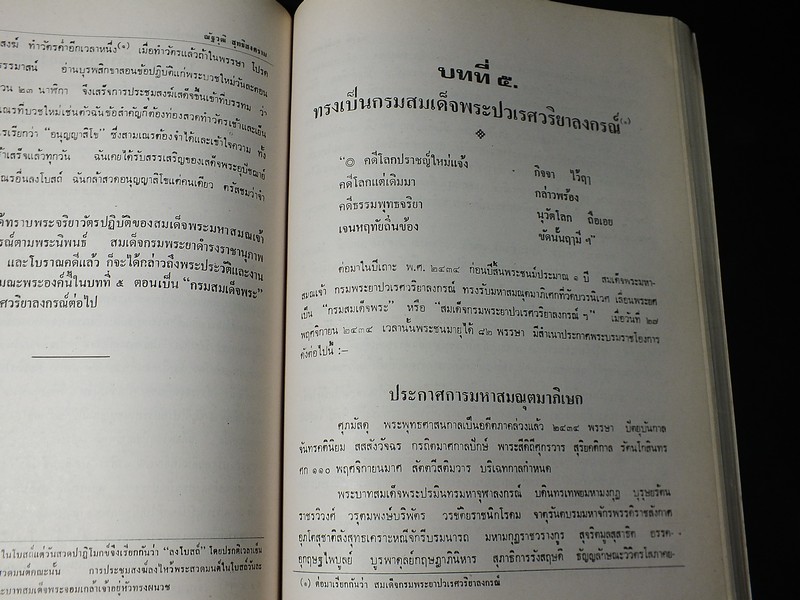 ณัฐวุฒิ สุทธิสงคราม
สงฆ์ ทำวัตรค่ำอีกเวลาหนึ่ง(๑) เมื่อทำวัตรแล้วถ้าในพรรษา โปรด
ธรรมาสน์ อ่านบุรพสิกขาสอนข้อปฏิบัติแก่พระบวชใหม่วันละตอน
วน ๒๓ นาฬิกา จึงเสร็จการประชุมสงฆ์เสด็จขึ้นเข้าที่บรรทม ว่า
ณรที่บวชใหม่เช่นตัวฉันข้อสำคัญก็ต้องท่องสวดทำวัตรเช้าและเย็น
รเรียกว่า "อนุญญาสิโข" ซึ่งสามเณรต้องจำได้และเข้าใจความ ทั้ง
จ้าเสร็จแล้วทุกวัน ฉันเคยได้รับสรรเสริญของเสด็จพระอุปัชฌาย์
ณรอื่นลงโบสถ์ ฉันกล้าสวดอนุญญาสิโขแต่คนเดียว ตรัสชมว่าจำ
ด้ทราบพระจริยาวัตรปฏิบัติของสมเด็จพระมหาสมณเจ้า
รณ์ตามพระนิพนธ์ สมเด็จกรมพระยาดำรงราชานุภาพ
และโบราณคดีแล้ว ก็จะได้กล่าวถึงพระประวัติและงาน
มณะพระองค์นี้ในบทที่ ๕ ตอนเป็น "กรมสมเด็จพระ"
ศวริยาลงกรณ์ต่อไป
ในโบสถ์แต่วันสวดปาฏิโมกข์จึงเรียกกันว่า "ลงโบสถ์" โดยปรกติเวลาเย็น
วดมนต์คณะนั้น การประชุมสงฆ์ลงไหว้พระสวดมนต์ในโบสถ์วันละ
ะบาทสมเด็จพระจอมเกล้าเจ้าอยู่หัวทรงผนวช
บทที่ ๕.
ทรงเป็นกรมสมเด็จพระปวเรศวริยาลงกรณ์(๑)
"๏ คดีโลกปราชญ์ใหม่แจ้ง กิจจา ไว้ฤๅ
คดีโลกแต่เดิมมา กล่าวพร้อง
คดีธรรมพุทธจริยา นุวัตโลก ถือเอย
เจนหฤทัยถิ่นข้อง ขัดนั้นฤามี ฯ"
ต่อมาในปีเถาะ พ.ศ. ๒๔๓๔ ก่อนปีสิ้นพระชนม์ประมาณ ๑ ปี สมเด็จพระมหา-
สมณเจ้า กรมพระยาปวเรศวริยาลงกรณ์ ทรงรับมหาสมณุตมาภิเศกที่วัดบวรนิเวศ เลื่อนพระยศ
เป็น "กรมสมเด็จพระ" หรือ "สมเด็จกรมพระยาปวเรศวริยาลงกรณ์ ฯ" เมื่อวันที่ ๒๗
พฤศจิกายน ๒๔๓๔ เวลานั้นพระชนมายุได้ ๘๒ พรรษา มีสำเนาประกาศพระบรมราชโองการ
ดังต่อไปนี้ :—
ประกาศการมหาสมณุตมาภิเษก
ศุภมัสดุ พระพุทธศาสนกาลเป็นอดีตภาคล่วงแล้ว ๒๔๓๔ พรรษา ปัตยุบันกาล
จันทรคตินิยม สสสังวัจฉร กรติกมาศกาลปักษ์ พาระสีดิถีศุกรวาร สุริยคติกาล รัตนโกสินทร
ศก ๑๑๐ พฤศจิกายนมาศ สัตตวีสติมวาร บริเฉทกาลกำหนด
พระบาทสมเด็จพระปรมินทรมหาจุฬาลงกรณ์ บดินทรเทพยมหามงกุฎ บุรุษยรัตน
ราชรวิวงศ์ วรุตมพงษ์บริพัตร วรขัติยราชนิกโรดม จาตุรันตบรมมหาจักรพรรดิราชสังกาศ
อุภโตสุชาติสังสุทธเคราะหณีจักรีบรมนารถ มหามกุฎราชวรางกูร สุจริตมูลสุสาธิต อรรค-
อุกฤษฐไพบูลย์ บูรพาดุลย์กฤษฎาภินิหาร สุภาธิการรังสฤษดิ ธัญญลักษณะวิจิตรโสภาคย-
(๑) ต่อมาเรียกกันว่า สมเด็จกรมพระยาปวเรศวริยาลงกรณ์